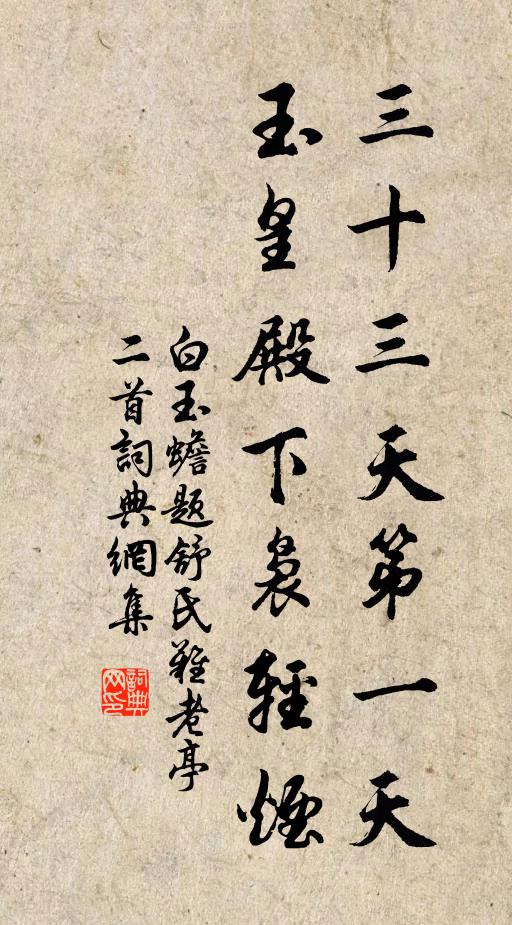 三十三天第一天
玉皇殿下裊輕煙
白玉蟾題舒氏難老亭
二首詞典網集
詞典网印